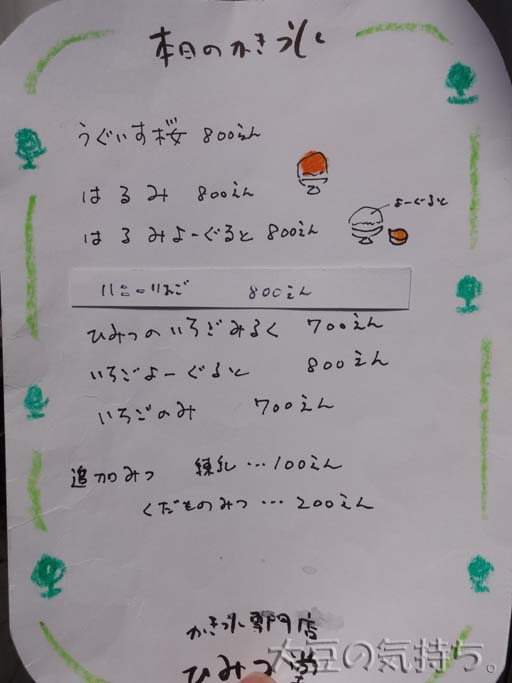 本日のかき氷
うぐいす桜 800えん
はるみ 800えん
よーぐると
はるみよーぐると 800えん
800えん
ひみつのいちごみるく 700えん
いちごよーぐると 800えん
いちごのみ 700えん
追加みつ 練乳…100えん
くだものみつ…200えん
かき氷専門店
ひみつ堂
大豆の気持ち。